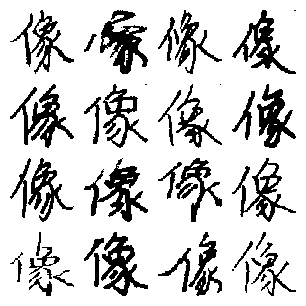 像像像像
像像像像
像像像像
像像像像